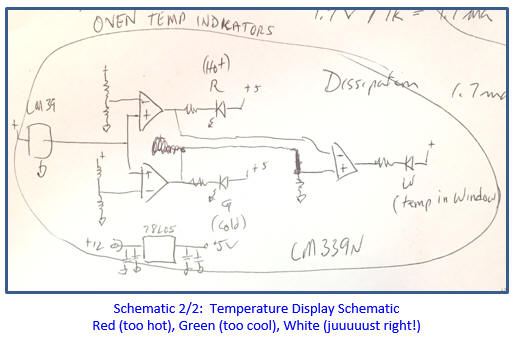 OVEN TEMP INDICATORS
1.7V / 1K = 1.7 ma
(Hot)
R
+5
Dissipation
1.7 ma
LM39
+
-
+
+
-
+5
G
(Cold)
+
-
+
W
(temp in Window)
+12
78L05
+5V
LM339N
Schematic 2/2: Temperature Display Schematic
Red (too hot), Green (too cool), White (juuuuust right!)